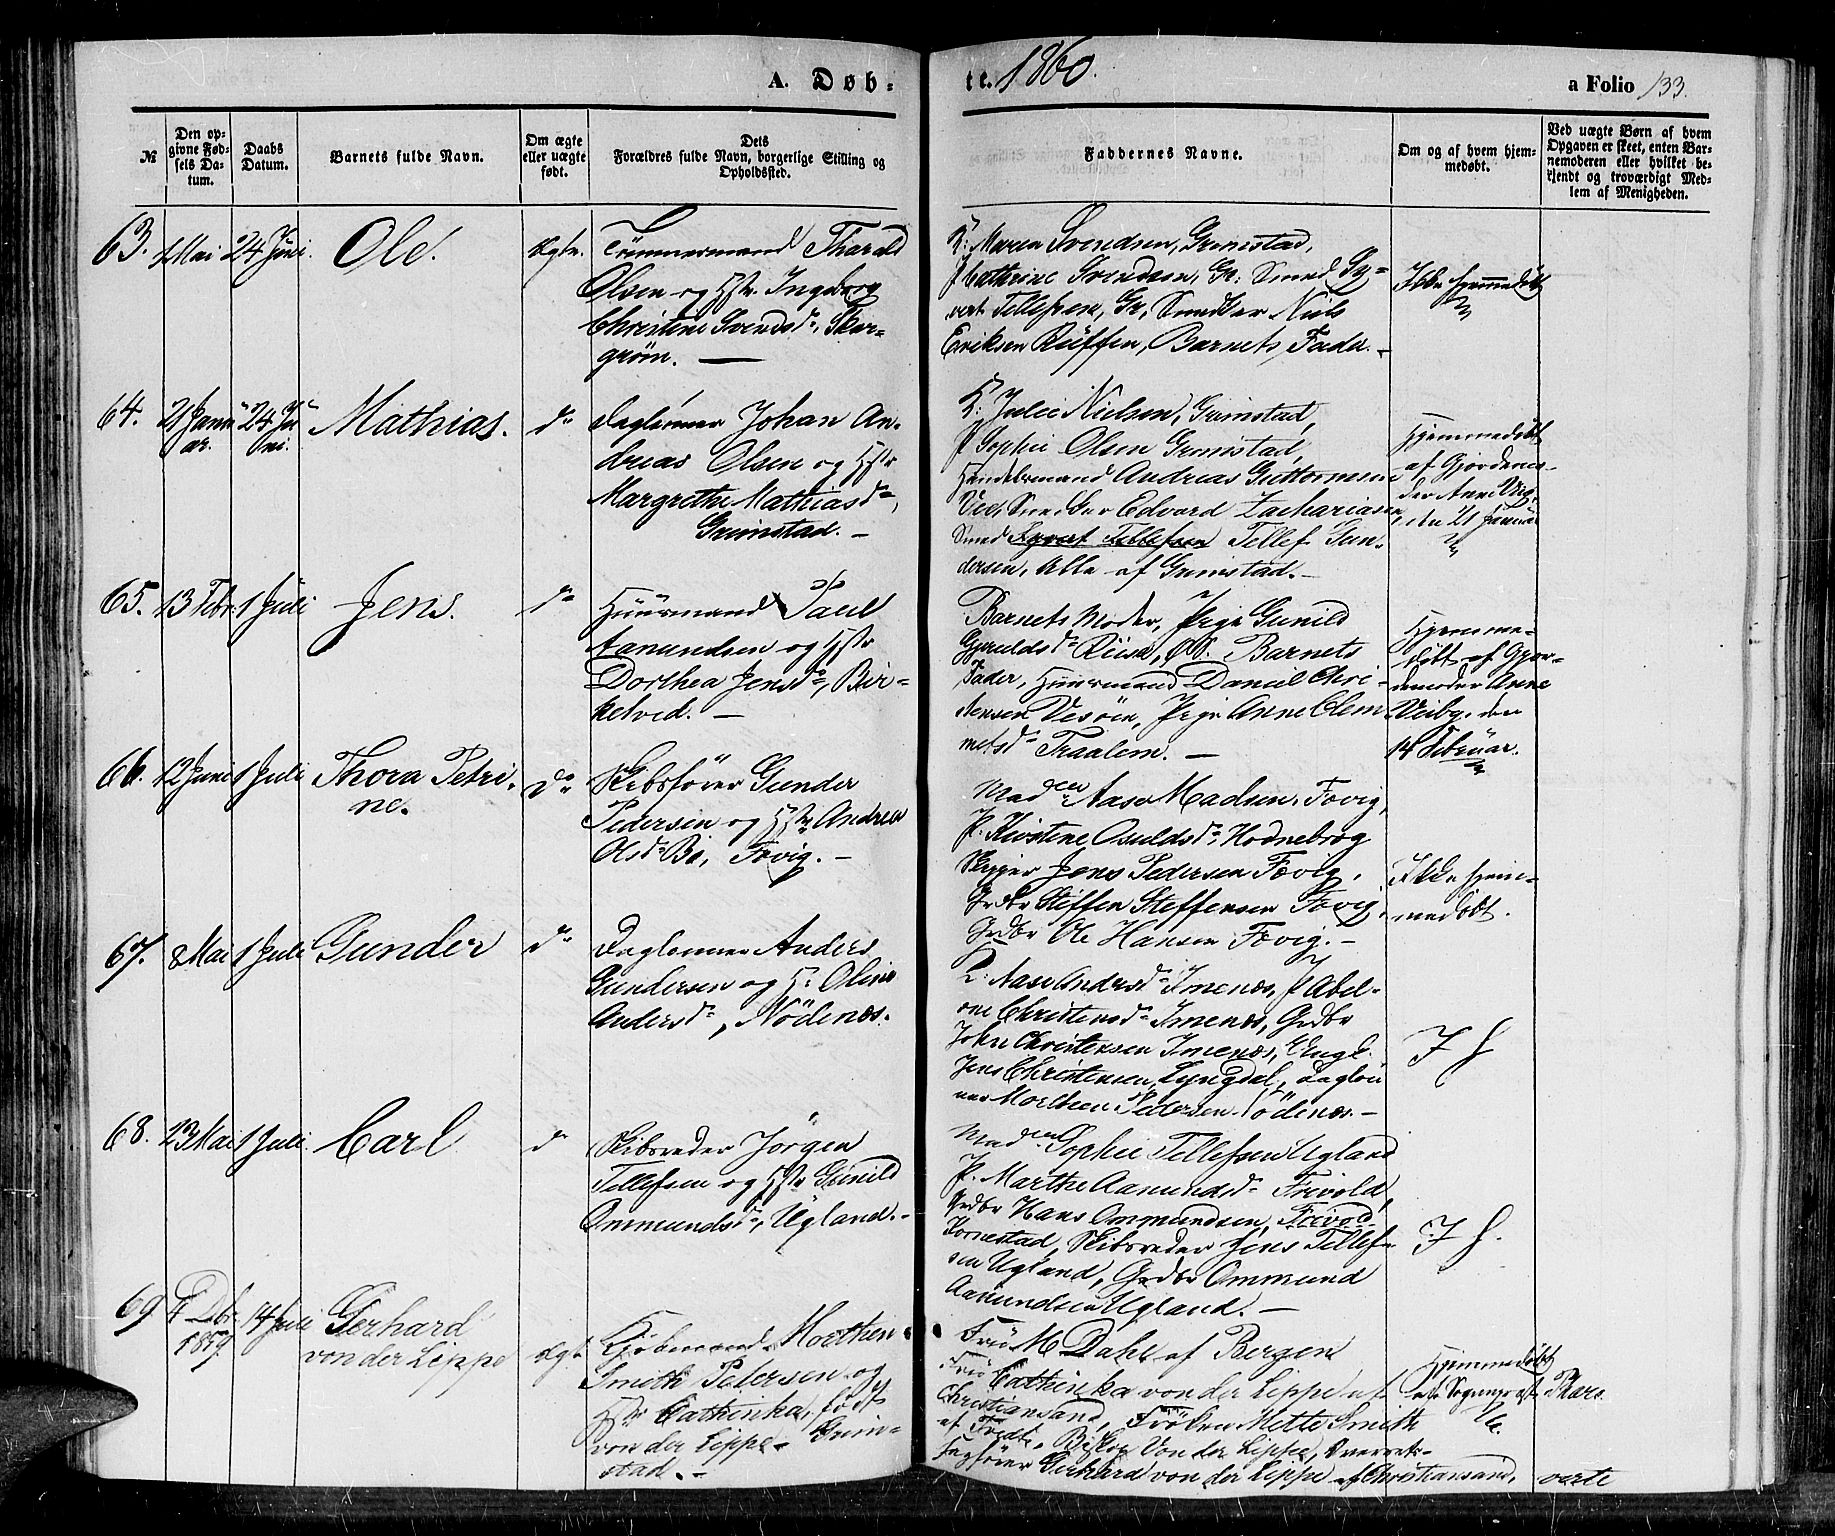 A. Døb-
te. 1860.
a Folio 133.
№
Den op-
givne Fød-
sels Da-
tum.
Daabs
Datum.
Barnets fulde Navn.
Om ægte
eller uægte
født.
Dets
Forældres fulde Navn, borgerlige Stilling og
Opholdssted.
Faddernes Navne.
Om og af hvem hjem-
medøbt.
Ved uægte Børn af hvem
Opgaven er skeet, enten Bar-
nemoderen eller hvilket be-
kjendt og troværdigt Med-
lem af Menigheden.
63. 1 Mai 24 Juni. Ole. ægte.
Tømmermand Tharald
Olsen og Hstr. Ingeborg
Christine Svendsd.,
grøm. —
K: Maren Svendsen, Grimstad,
P Cathrine Svendsen, Gr: Smed Sy-
vert Tellefsen, Gr, Niels
Eriksen Barnets Fader. -
Ikke hjemmedøbt
64. 21 Janu-
ar. 24 Ju-
ni. Mathias. do
Dagleiner Johan An-
dreas Olsen og Hstr
Margrethe Mathiasd.,
Grimstad. -
K: Julie Nielsen, Grimstad,
P Sophie Olsen Grimstad,
Handelsmand Andreas Guttormsen
Edvard Zachariasen
Smed Syvert Tellefsen Tellef Gun-
dersen, Alle af Grimstad. -
Hjemmedøbt
af Gjordemo-
der Anne
den 21 Januar
65. 13 Febr. 1 Juli Jens. do
Huusmand Paul
Aanundsen og Hstr
Dorthea Jensd., Bir-
ketved. -
Barnets Moder, Pige Gunild
Gjeruldsd. Barnets
Fader, Huusmand Daniel Chri-
stensen Vesøen, Pige Anne Clem-
metsd. Traalem. -
Hjemme-
døbt af Gjor-
demoder Anne
Veiby den
14 Februar.
66. 12 Juni 1 Juli Thora Petri-
ne. do
Skibsfører Gunder
Pedersen og Hstr Andrea
Olsd. Bo, Fevig. -
Mad. Aase Madsen, Fevig,
P. Kirstine Osuldsd. Hodnebrog
Skipper Jens Pedersen Fevig,
Grdbr Steffen Steffensen Fevig,
Grdbr Ole Hansen Fevig. -
Ikke hjem-
medøbt.
67. 8 Mai 1 Juli Gunder do
Dagleiner Anders
Gundersen og H: Oline
Andersd., Nødenæs.
K: Aase Andersd. Imenæs, P Abel-
one Christensd. Imenæs, Grdbr
John Christensen Imenæs, Ungk.
Jens Christensen, Lyngdal, Daglei-
ner Morthen Pedersen Nødenæs. -
I h
68. 23 Mai 1 Juli. Carl do
Skibsreder Jørgen
Tellefsen og Hstr Gunild
Ommundsd., Ugland. -
Mad. Sophie Tellefsen Ugland
P. Marthe Aanundsd. Frevold,
Grdbr Hans Ommundsen,
Skibsreder Jens Tellef-
sen Ugland, Grdbr Ommund
Aanundsen Ugland. -
I h.
69 4 Dbr.
1859. 14 Juli Gerhard
von der Lippe ægt.
Kjøbmand Morthen
Smith Petersen og
Hstr Cathinka, født
von der Lippe. Grim-
stad. -
Frü M Dahl af Bergen
Frü Cathinka von der Lippe af
Christiansand, Frøken Mette Smith
af Biskop Von der Lippe, Overrets-
sagfører Gerhard von der Lippe af Christiansand,
Hjemmedøbt
af Sognepræst
verte